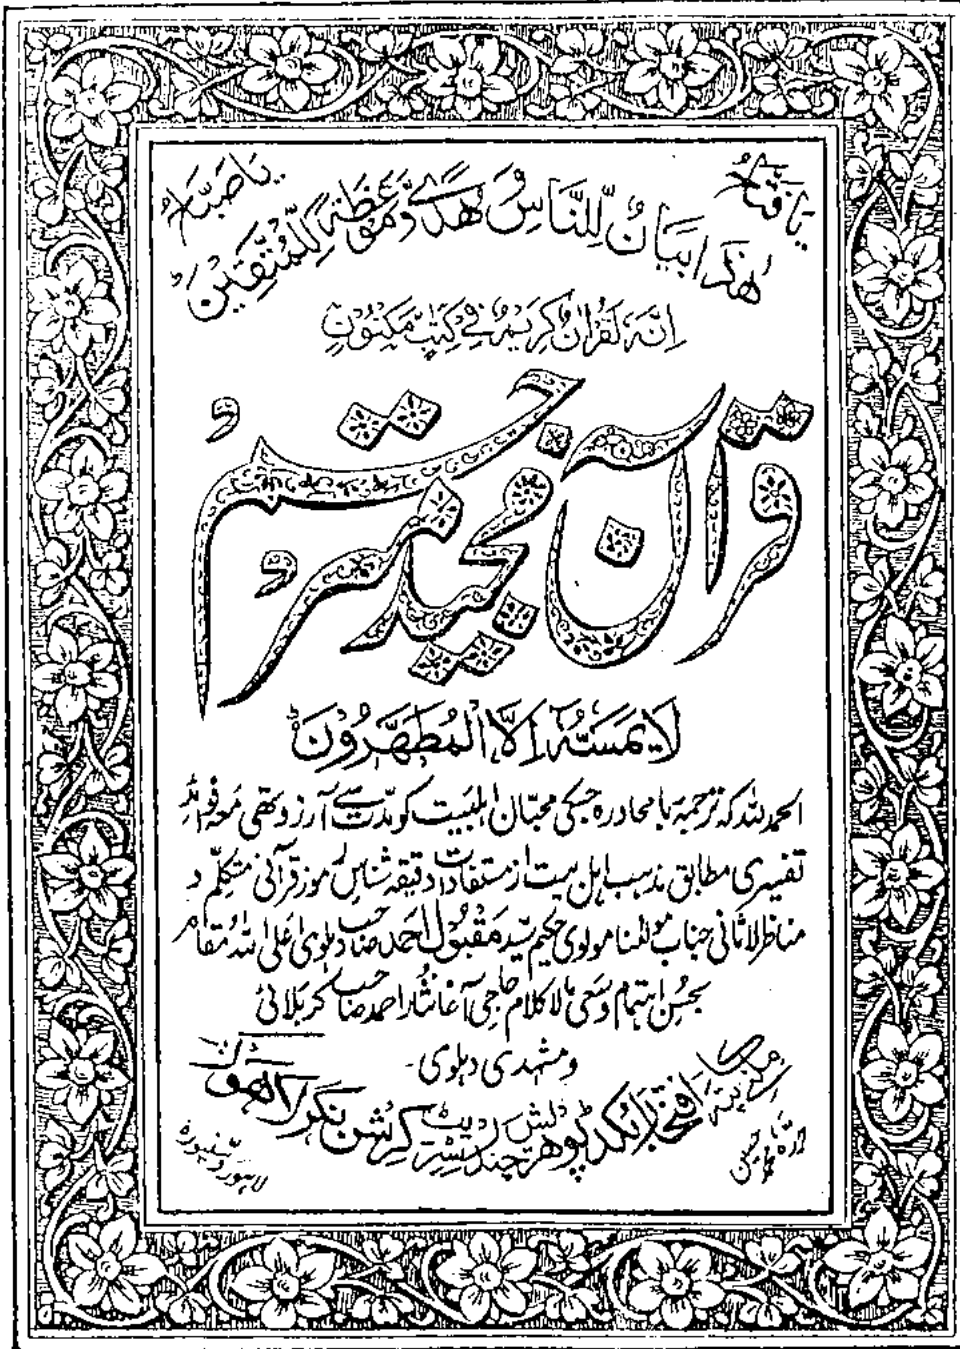 یا فتاح
یا صباح
هٰذَا بَيَانٌ لِّلنَّاسِ وَهُدًى وَّمَوْعِظَةٌ لِّلْمُتَّقِيْنَ
اِنَّهٗ لَقُرْاٰنٌ كَرِيْمٌ فِیْ كِتٰبٍ مَّكْنُوْنٍ
قرآن مجید مترجم
لَا يَمَسُّهٗٓ اِلَّا الْمُطَهَّرُوْنَ
الحمد للہ کہ ترجمہ بامحاورہ جسکی محبّان اہلبیت کو مدّت سے آرزو تھی معہ فوائد
تفسیری مطابق مذہب اہل بیت از مستفادات دقیقہ شناس رموز قرآنی متکلّم و
مناظر لاثانی جناب مولٰنا مولوی حکیم سیّد مقبول احمد صاحب دہلوی اعلی اللہ مقامہ
بحسن اہتمام وسعی مالاکلام حاجی آغا نثار احمد صاحب کربلائی
ومشہدی دہلوی۔
ملنے کا پتہ
افتخار بکڈپو ہریش چند سٹریٹ کرشن نگر لاہور
لاہور